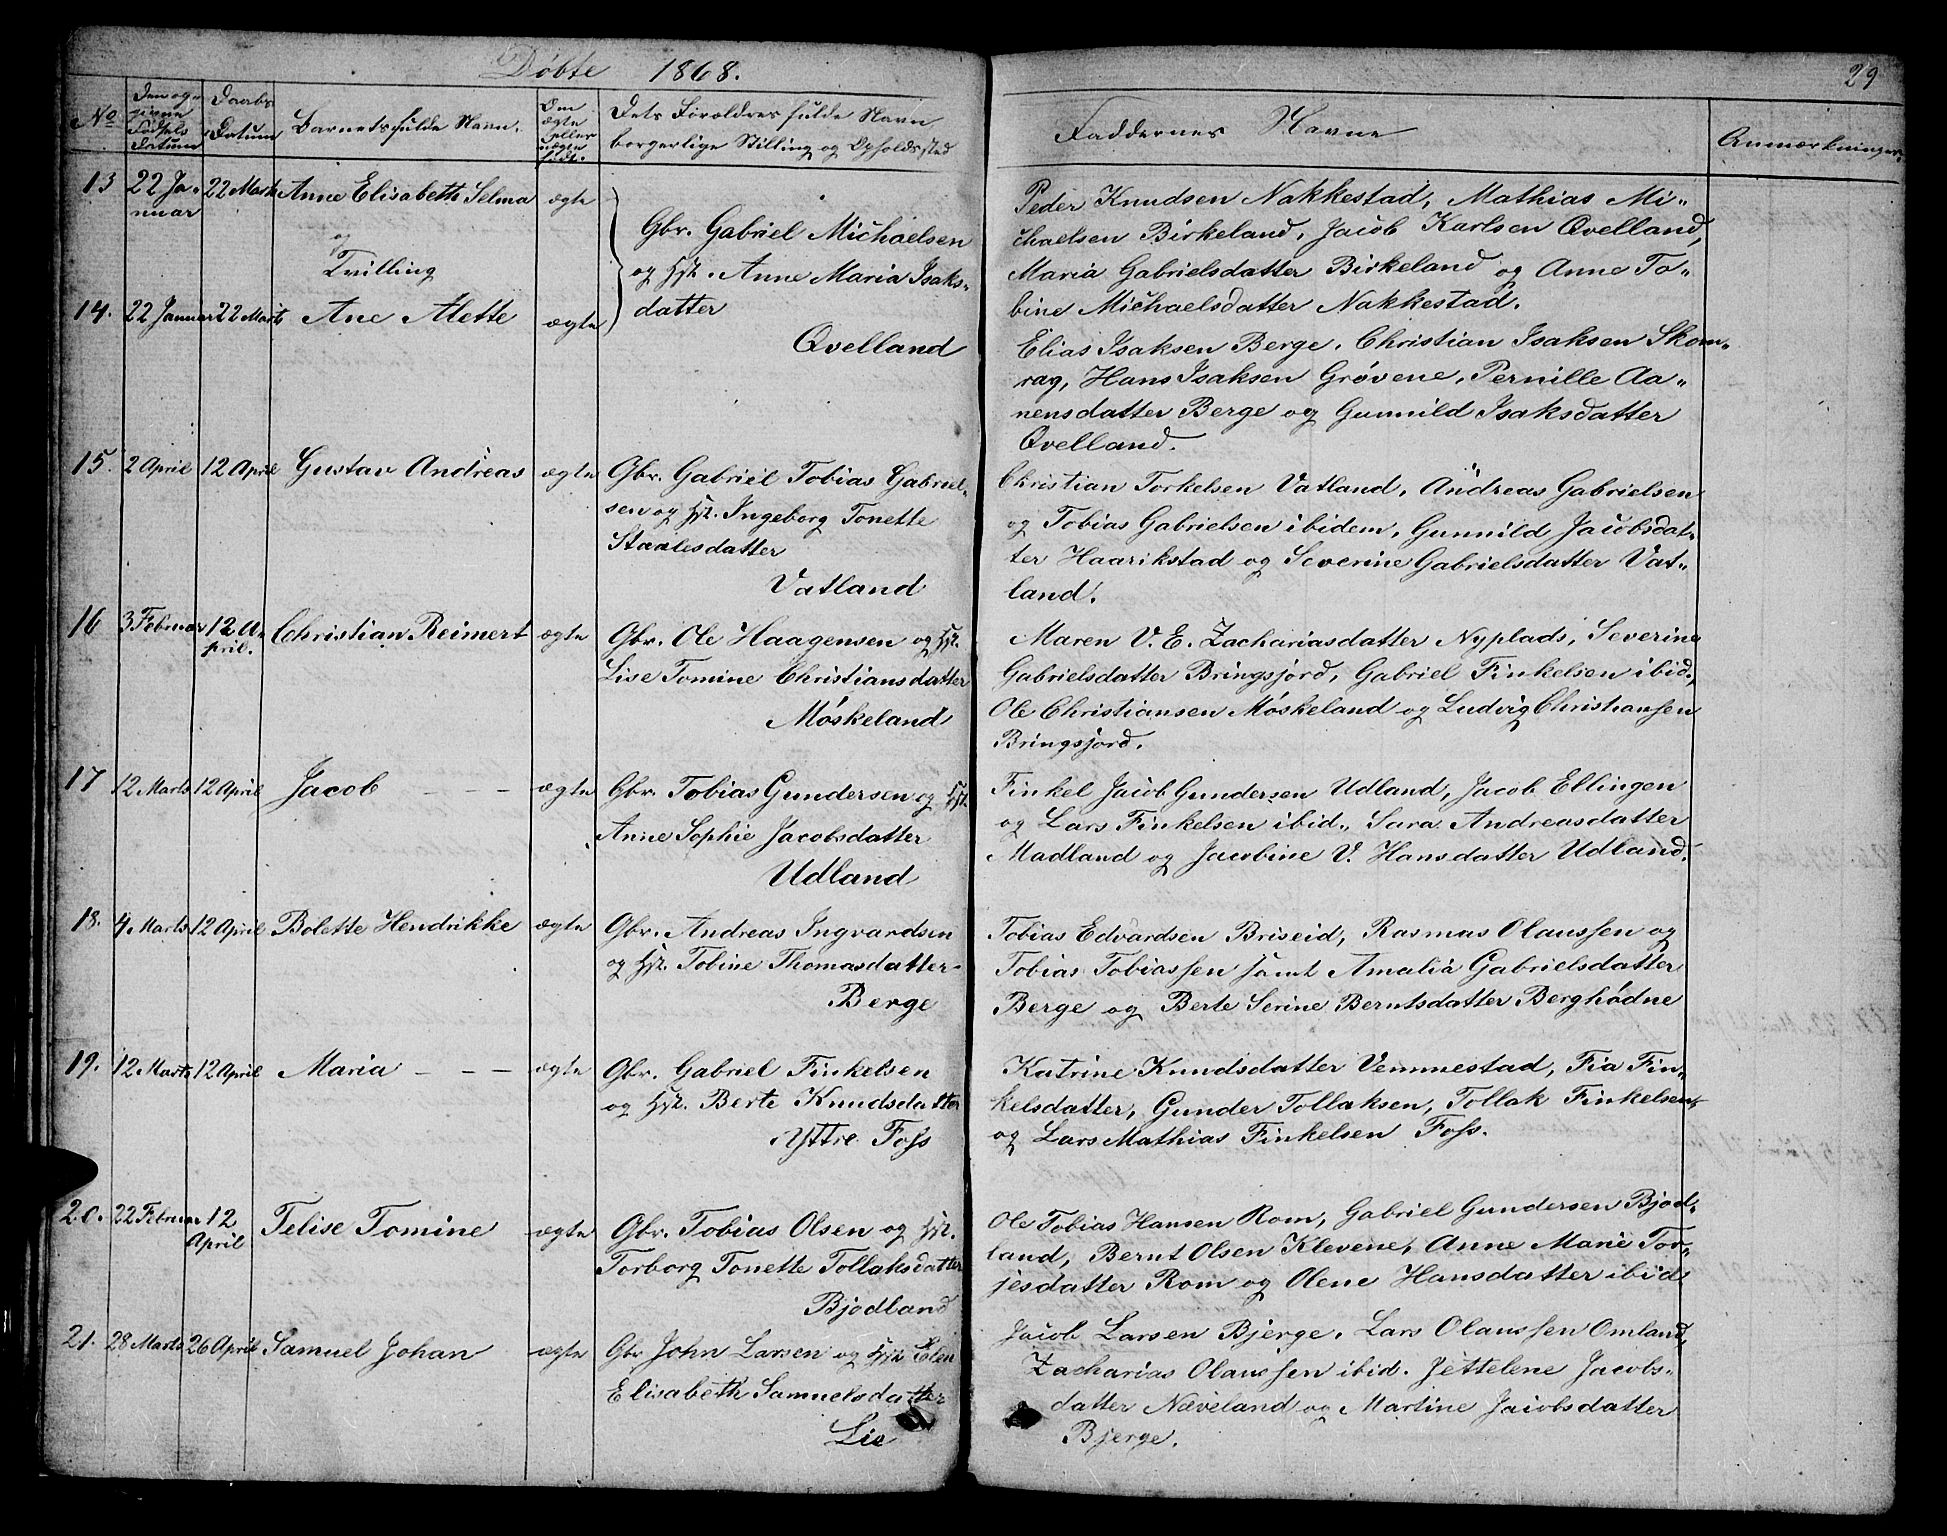 Døbte 1868.
29
No
Den op-
givne
Fødsels
Datum
Daabs
Datum
Barnets fulde Navn.
Om
ægte
eller
uægte
født.
Dets Forældres fulde Navn
borgerlige Stilling og Opholdssted
Faddernes Navne
Anmærkninger.
13 22 Ja-
nuar 22 Marts Anne Elisabeth Selma ægte
og
Tvilling
14. 22 Januar 22 Marts Ane Alette ægte
Gbr. Gabriel Michaelsen
og Hst. Anne Maria Isaks-
datter
Qvelland
Peder Knudsen Nakkestad, Mathias Mi-
chaelsen Birkeland, Jacob Karlsen Qvelland,
Maria Gabrielsdatter Birkeland og Anne To-
bine Michaelsdatter Nakkestad.
Elias Isaksen Berge, Christian Isaksen Skom-
rag, Hans Isaksen Grøvene, Pernille Aa-
nensdatter Berge og Gunnild Isaksdatter
Qvelland.
15. 2 April 12 April Gustav Andreas ægte Gbr. Gabriel Tobias Gabriel-
sen og Hst. Ingeborg Tonette
Staalesdatter
Vatland
Christian Torkelsen Vatland, Andreas Gabrielsen
og Tobias Gabrielsen ibidem, Gunnild Jacobsdat-
ter Haarikstad og Severine Gabrielsdatter Vat-
land.
16 3 Februar 12 A-
pril. Christian Reimert ægte Gbr. Ole Haagensen og Hst.
Lise Tomine Christiansdatter
Møskeland
Maren V. E. Zachariasdatter Nyplads, Severine
Gabrielsdatter Bringsjord, Gabriel Finkelsen ibid.,
Ole Christiansen Møskeland og Ludvig Christiansen
Bringsjord.
17 12 Marts 12 April Jacob - - - ægte Gbr. Tobias Gundersen og Hst.
Anne Sophie Jacobsdatter
Udland
Finkel Jacob Gundersen Udland, Jacob Ellingen
og Lars Finkelsen ibid., Sara Andreasdatter
Madland og Jacobine V. Hansdatter Udland.
18. 4 Marts 12 April Bolette Hendrikke ægte Gbr. Andreas Ingvardsen
og Hst. Tobine Thomasdatter-
Berge
Tobias Edvardsen Briseid, Rasmus Olaussen og
Tobias Tobiassen samt Amalia Gabrielsdatter
Berge og Berte Serine Berntsdatter Berghødne
19. 12 Marts 12 April Maria - - - ægte Gbr. Gabriel Finkelsen
og Hst. Berte Knudsdatter
Yttre Foss
Katrine Knudsdatter Vemmestad, Fia Fin-
kelsdatter, Gunder Tollaksen, Tollak Finkelsen,
og Lars Mathias Finkelsen Foss.
20. 22 Februar 12
April Telise Tomine ægte Gbr. Tobias Olsen og Hst.
Torborg Tonette Tollaksdatter
Bjodland
Ole Tobias Hansen Rom, Gabriel Gundersen Bjod-
land, Bernt Olsen Klevene, Anne Marie Tor-
jesdatter Rom og Olene Hansdatter ibid
21. 28 Marts 26 April Samuel Johan ægte Gbr John Larsen og Hst Elen
Elisabeth Samuelsdatter
Lie
Jacob Larsen Bjerge, Lars Olaussen Omland,
Zacharias Olaussen ibid. Jettelene Jacobs-
datter Næveland og Martine Jacobsdatter
Bjerge.